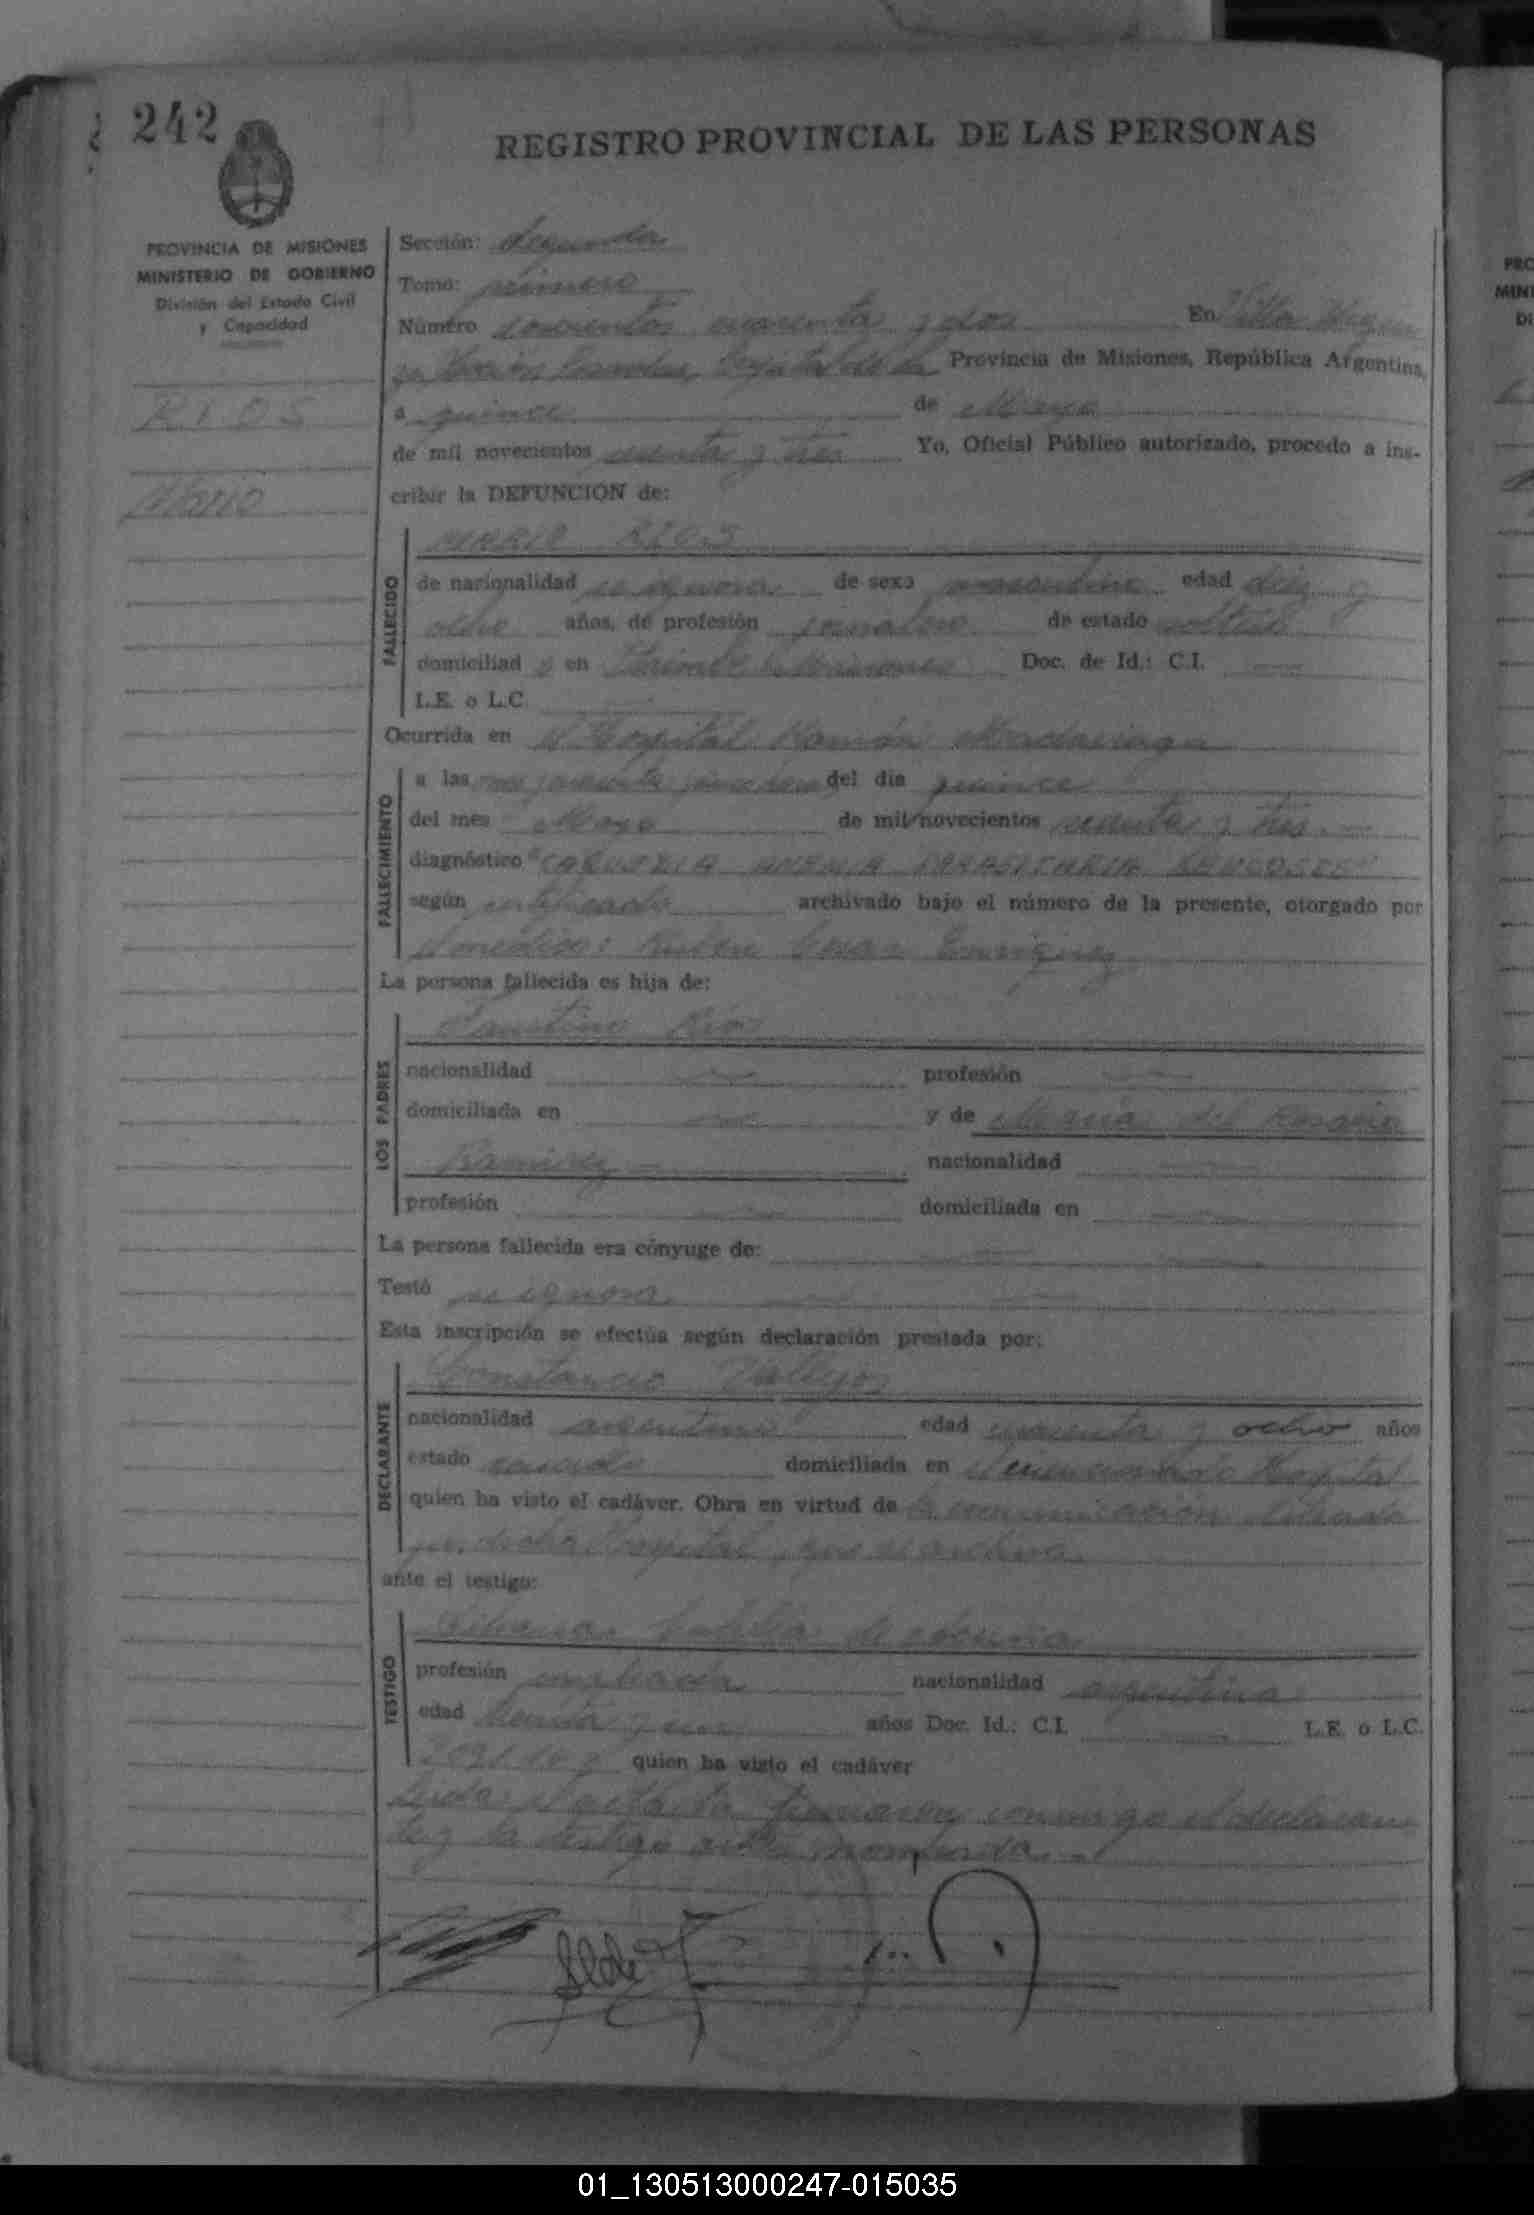 242
REGISTRO PROVINCIAL DE LAS PERSONAS
PROVINCIA DE MISIONES
MINISTERIO DE GOBIERNO
División del Estado Civil
y Capacidad
RIOS
Mario
Sección: Segunda
Tomo: primero
Número doscientos cuarenta y dos En Villa
Provincia de Misiones, República Argentina,
a quince de Mayo
de mil novecientos sesenta y tres Yo, Oficial Público autorizado, procedo a ins-
cribir la DEFUNCION de:
FALLECIDO
MARIO RIOS
de nacionalidad se ignora de sexo masculino edad diez y
ocho años, de profesión jornalero de estado soltero
domiciliad o en Misiones Doc. de Id.: C.I.
L.E. o L.C.
Ocurrida en el Hospital Ramón Madariaga
FALLECIMIENTO
a las del dia quince
del mes Mayo de mil novecientos sesenta y tres
diagnóstico "CAQUEXIA ANEMIA PARASITARIA
según certificado archivado bajo el número de la presente, otorgado por
el médico: Ruben Cesar Enriquez
La persona fallecida es hija de:
LOS PADRES
Faustino Rios
nacionalidad profesión
domiciliada en y de Maria del Rosario
Ramirez nacionalidad
profesión domiciliada en
La persona fallecida era cónyuge de:
Testó se ignora
Esta inscripción se efectúa según declaración prestada por:
DECLARANTE
Constancio Vallejos
nacionalidad argentino edad cuarenta y ocho años
estado casado domiciliada en el mencionado Hospital
quien ha visto el cadáver. Obra en virtud de la comunicación
por dicho Hospital, que se archiva
ante el testigo:
TESTIGO
profesión empleada nacionalidad argentina
edad treinta y un años Doc. Id.: C.I. L.E. o L.C.
quien ha visto el cadáver
Leída el acta la firmaron conmigo el declaran-
te y la testigo nombrada
01_130513000247-015035